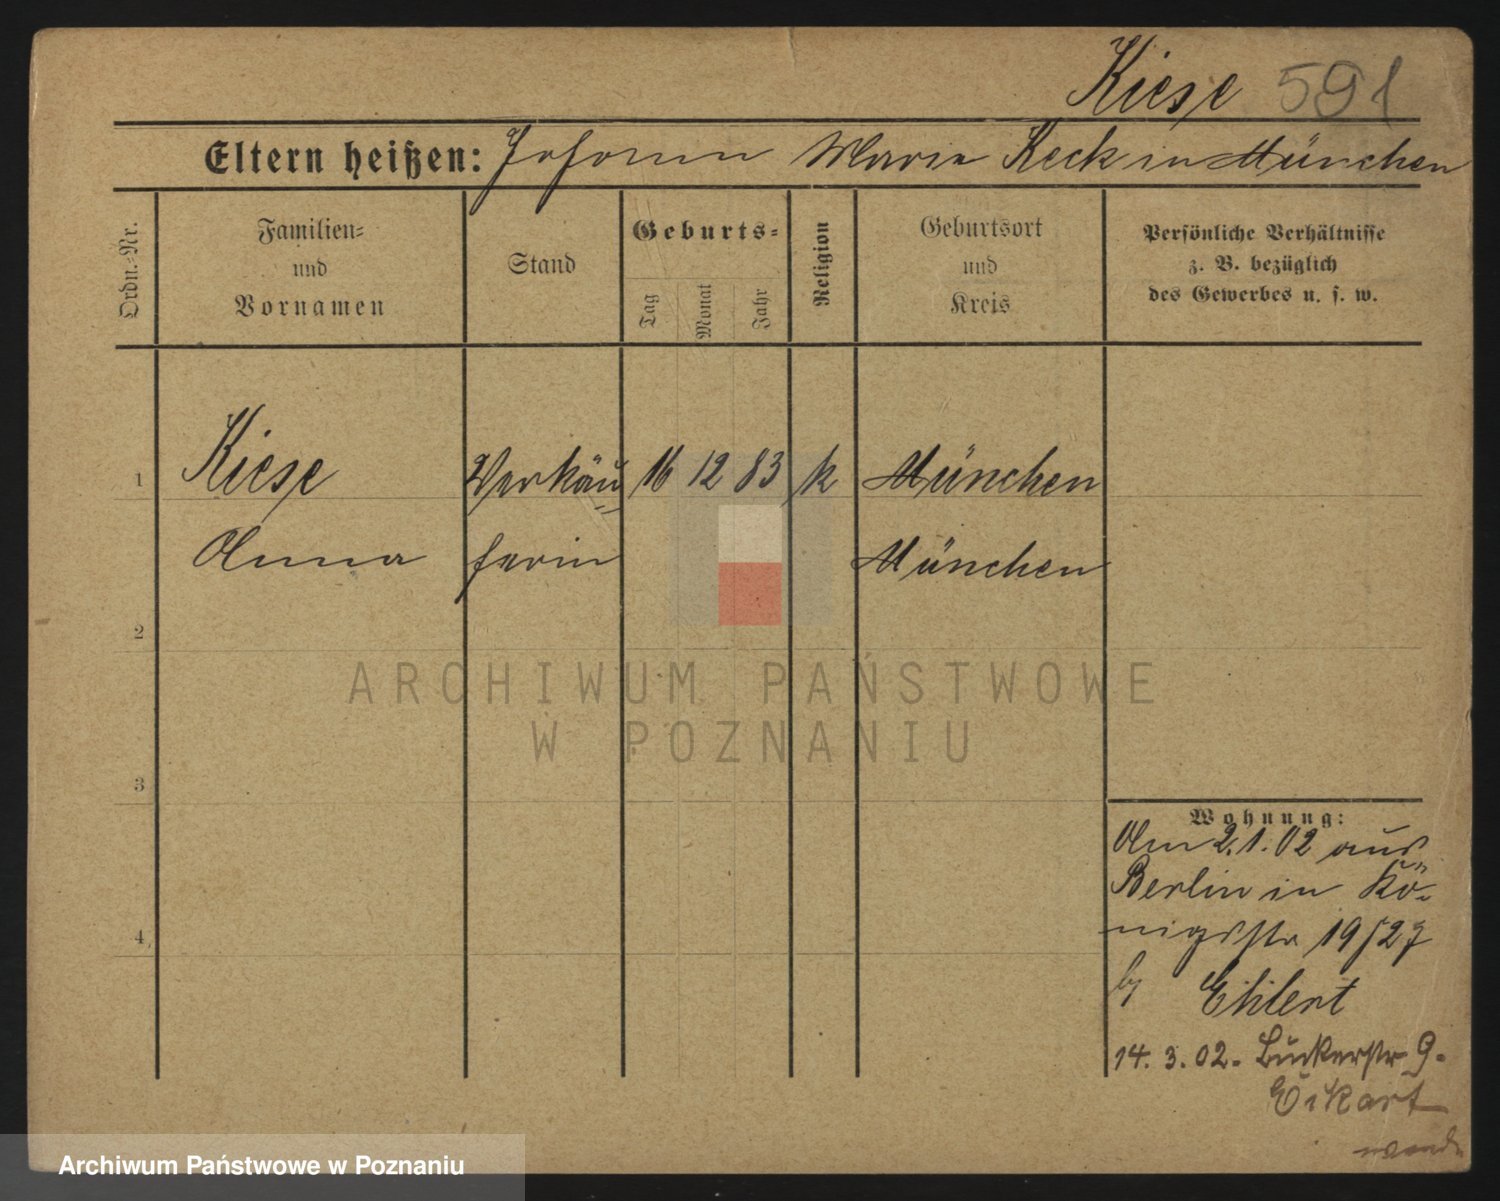 Kiese 591
Eltern heißen: Johann Maria Keck in München
Ordn.-Nr.
Familien-
und
Vornamen
Stand
Geburts-
Tag
Monat
Jahr
Religion
Geburtsort
und
Kreis
Persönliche Verhältnisse
z. B. bezüglich
des Gewerbes u. s. w.
1 Kiese Verkäu 16 12 83 k München
Anna ferin München
2
3
4
ARCHIWUM PAŃSTWOWE
W POZNANIU
Wohnung:
Am 2.1.02 aus
Berlin in Kö-
nigsstr 19/27
by Ehlert
14. 3. 02. Bäckerstr 9.
Eikart
Archiwum Państwowe w Poznaniu